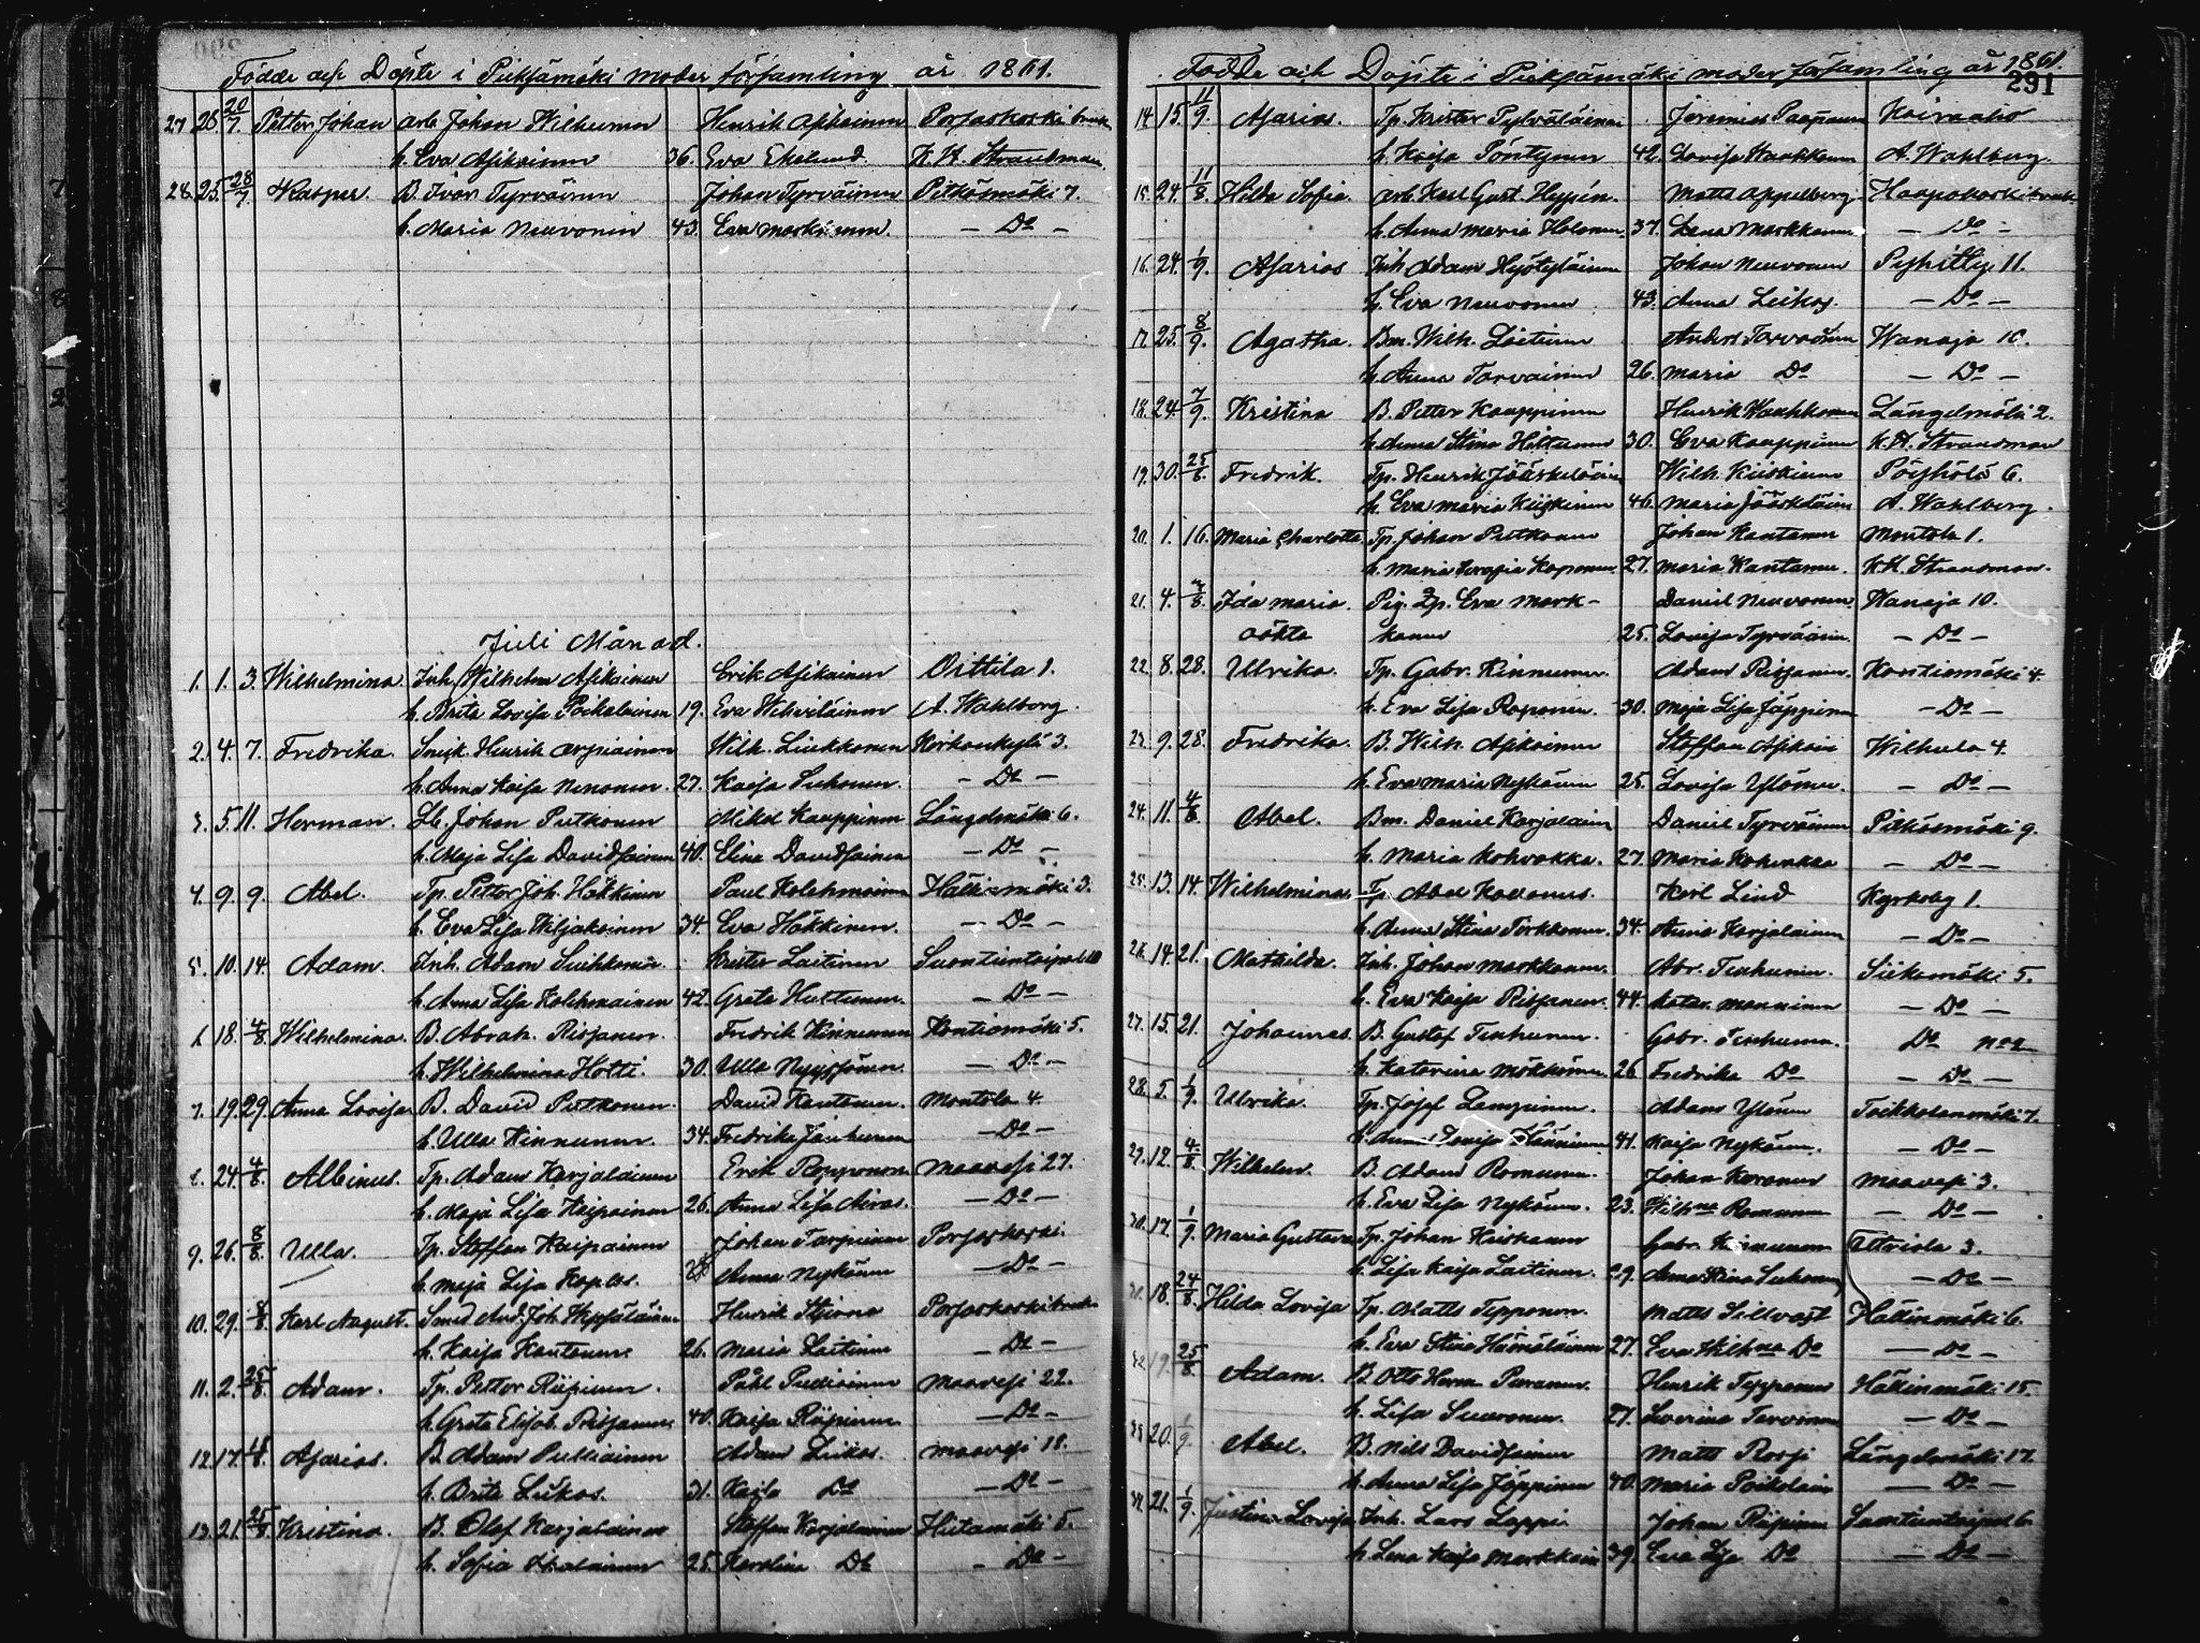 Födde och Döpte i Pieksämäki moder församling år 1861.
27 28 20/7 Petter Johan arb. Johan Wilhunen Henrik Asikainen Porsaskoski bruk
h. Eva Asikainen 36. Eva Ekelund K. H. Strandman
28. 25. 28/7 Kasper. B. Ivar Tyrväinen Johan Tyrväinen Pitkäsmäki 7.
h. Maria Neuvonin 43. Eva Markkanen. — Do —
Juli Månad.
1. 1. 3. Wilhelmina. Inh. Wilhelm Asikainen Erik Asikainen Oittila 1.
h. Brita Lovisa Poikolainen 19. Eva Wihviläinen A. Wahlberg.
2. 4. 7. Fredrika. Snick. Henrik Arpiainen Wilh. Liukkonen Korhonkylä 3.
h. Anna Kaisa Nenonen. 27. Kaisa Suhonen. — Do —
3. 5. 11. Herman. Johan Putkonen Mikel Kauppinen Längelmäki 6.
h. Maja Lisa Davidsainen 40. Elina Davidsainen — Do —
4. 9. 9. Abel. Tp. Petter Joh. Häkkinen Paul Kolehmainen Hällinmäki 3.
h. Eva Lisa Wiljakainen 34. Eva Häkkinen. — Do —
5. 10. 14. Adam. Inh. Adam Suihkonen. Krister Laitinen Suontientaipal 10
h. Anna Lisa Kolehmainen 42. Greta Huttunen. — Do —
6 18. 4/8. Wilhelmina. B. Abrah. Risjanen. Fredrik Kinnunen Kontiomäki 5.
h. Wilhelmina Hotti. 30. Ulla Nyyssönen. — Do —
7. 19. 29. Anna Lovisa B. David Putkonen. David Kantanen. Montola 4.
h. Ulla Kinnunen. 34. Fredrika Janhunen — Do —
8. 24. 4/8. Albinus. Tp. Adam Karjalainen Erik Ropponen Maavesi 27.
h. Maja Lisa Kaipainen 26. Anna Lisa Airas. — Do —
9. 26. 8/8. Ulla. Tp. Staffan Kaipainen Johan Tarpinen Porsaskoski.
h. Maja Lisa Kaplas. 28 Anna Nykänen — Do —
10. 29. 8/8. Karl August. Smed And. Joh. Heppäläinen Henrik Stjerna Porsaskoski bruk
h. Kaisa Kantanen. 26. Maria Laitinen — Do —
11. 2. 25/8. Adam. Tp. Petter Riipinen. Påhl Pulliainen Maavesi 22.
h. Greta Elisab. Risjanen 40. Kaisa Riipinen — Do —
12. 17. 4/8 Asarias. B. Adam Pulliainen Adam Liukas. Maavesi 18.
h. Brita Liukas. 31. Kaisa Do — Do —
13. 21. 25/8. Kristina. B. Olof Karjalainen Staffan Karjalainen Hietamäki 5.
h. Sofia 25. Karolina Do — Do —
Födde och Döpte i Pieksämäki moder församling år 1861.
291
14 15. 11/9. Asarias. Tp. Krister Pylväläinen Jeremias Paapanen Koivaaho
h. Kaisa Pöntynen 42. Lovisa Kaukkanen A. Wahlberg.
15. 24. 11/8. Hilda Sofia. arb. Karl Gust. Heppén. Matts Appelberg Haapakoski bruk
h. Anna Maria Holonen. 37. Lena Markkanen — Do —
16. 24. 1/9. Asarias Inh. Adam Hyötyläinen Johan Neuvonen Pyhitty 11.
h. Eva Neuvonen 43. Anna Leikas. — Do —
17. 25. 8/9. Agatha. Bm. Wilh. Laitinen Anders Tarvainen Wanaja 10.
h. Anna Tarvainen 26. Maria Do — Do —
18. 24. 7/9. Kristina B. Petter Kauppinen Henrik Kaukkonen Längelmäki 2.
h. Anna Stina Hiltunen 30. Eva Kauppinen K. H. Strandman
19. 30. 25/8. Fredrik. Tp. Henrik Jääskeläinen Wilh. Kiiskinen Pöyhölä 6.
h. Eva Maria Kiiskinen 46. Maria Jääskeläin A. Wahlberg.
20. 1. 16. Maria Charlotta Tp. Johan Putkonen Johan Kantanen Montola 1.
h. Maria Serafia Kaponen 27. Maria Kantanen. K. H. Strandman.
21. 4. 7/8. Ida Maria. Pig. Tp. Eva Mark- Daniel Neuvonen Wanaja 10.
oäkta kanen 25. Lovisa Tyrväinen — Do —
22. 8. 28. Ulrika. Tp. Gabr. Kinnunen. Adam Risjanen. Kontiomäki 4.
h. Eva Lisa Roponen. 30. Maja Lisa Jäppinen — Do —
23. 9. 28. Fredrika. B. Wilh. Asikainen Staffan Asikain Wilhula 4.
h. Eva Maria Nykänen 25. Lovisa Ylönen. — Do —
24. 11. 4/8. Abel. Bm. Daniel Karjalainen Daniel Tyrväinen Pitkäsmäki 9.
h. Maria Kohvakka. 27. Maria Kohvakka — Do —
25. 13. 14. Wilhelmina Tp. Abel Kovanus. Karl Lind Kyrkoby 1.
h. Anna Stina Törkkönen. 34. Anna Karjalainen — Do —
26. 14. 21. Mathilda. Inh. Johan Markkanen. Abr. Tenhunen. Siikamäki 5.
h. Eva Kaisa Risjanen. 44. Katar. Manninen — Do —
27. 15. 21. Johannes B. Gustaf Tenhunen. Gabr. Tenhunen. Do No 2
h. Katarina Mökkönen. 26 Fredrika Do — Do —
28. 5. 1/9. Ulrika. Tp. Josef Lampinen. Adam Ylönen Toikkolanmäki 7.
h. Anna Lovisa Hänninen 41. Kaisa Nykänen. — Do —
29. 12. 4/8. Wilhelm. B. Adam Romunen. Johan Karanen Maavesi 3.
h. Eva Lisa Nykänen. 23. Wilhna Romunen — Do —
30. 17. 1/9. Maria Gustava Tp. Johan Kaiskanen Gabr. Kinnunen Uttriala 3.
h. Lisa Kaisa Laitinen. 29. Anna Stina Suhonen — Do —
31. 18. 24/8. Hilda Lovisa Tp. Matts Tepponen. Matts Sillvast Hällinmäki 6.
h. Eva Stina Hämäläinen 27. Eva Wilhna Do — Do —
32. 19. 25/8. Adam. B. Otto Herm. Puranen. Henrik Tepponen Hällinmäki 15.
h. Lisa Suuronen. 27. Severina Tarvainen — Do —
33 20. 1/9. Abel. B. Nils Davidsainen Matts Rossi Längelmäki 17.
h. Anna Lisa Jäppinen 40. Maria Poikolain — Do —
34. 21. 1/9. Justina Lovisa Inh. Lars Lappi. Johan Riipinen Suontientaipal 6.
h. Lena Kaisa Markkain 39. Eva Lisa Do — Do —